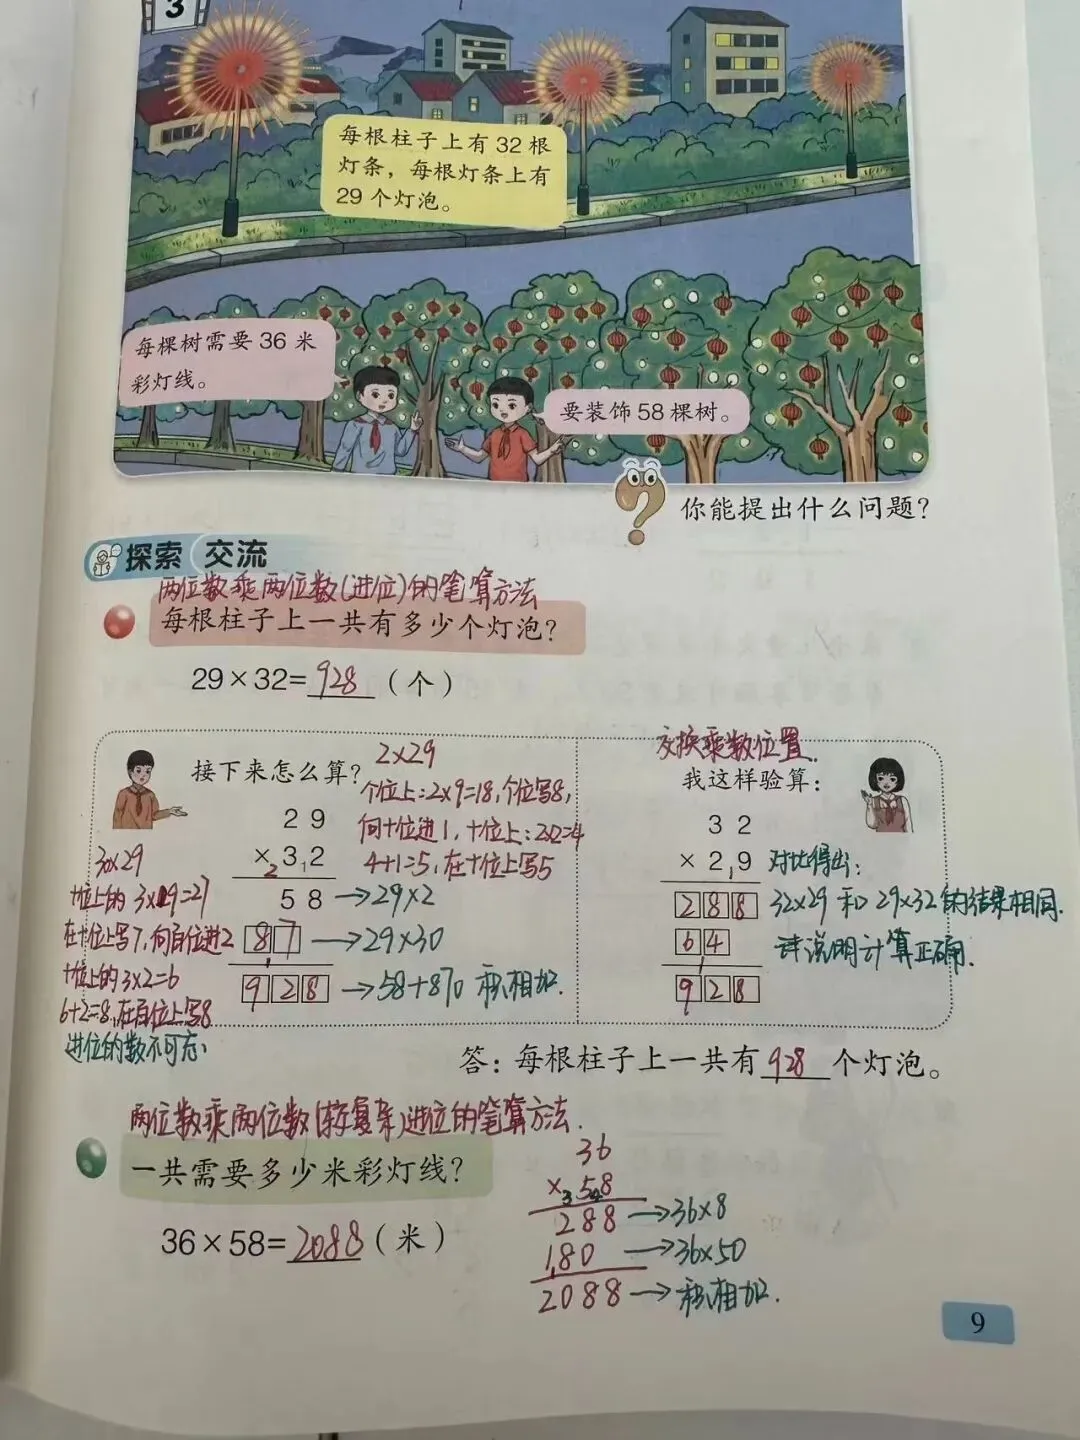 3
每根柱子上有 32 根
灯条，每根灯条上有
29 个灯泡。
每棵树需要 36 米
彩灯线。
要装饰 58 棵树。
你能提出什么问题？
探索 交流
两位数乘两位数(进位)的笔算方法
每根柱子上一共有多少个灯泡？
29×32=928（个）
接下来怎么算？
2×29
个位上：2×9=18，个位写8，
向十位进1，十位上：2×2=4
4+1=5，在十位上写5
30×29
十位上的 3×9=27
在十位上写7，向百位进2
十位上的3×2=6
6+2=8，在百位上写8
进位的数不可忘
2 9
× 2 3 1 2
5 8 → 29×2
8 7 → 29×30
9 2 8 → 58+870 积相加.
交换乘数位置.
我这样验算：
3 2
× 2 1 9
2 8 8
6 4
9 2 8
对比得出：
32×29 和 29×32 的结果相同.
说明计算正确.
答：每根柱子上一共有 928 个灯泡。
两位数乘两位数(较复杂)进位的笔算方法.
一共需要多少米彩灯线？
36×58=2088（米）
36
× 3 5 4 8
288 → 36×8
180 → 36×50
2088 → 积相加.
9